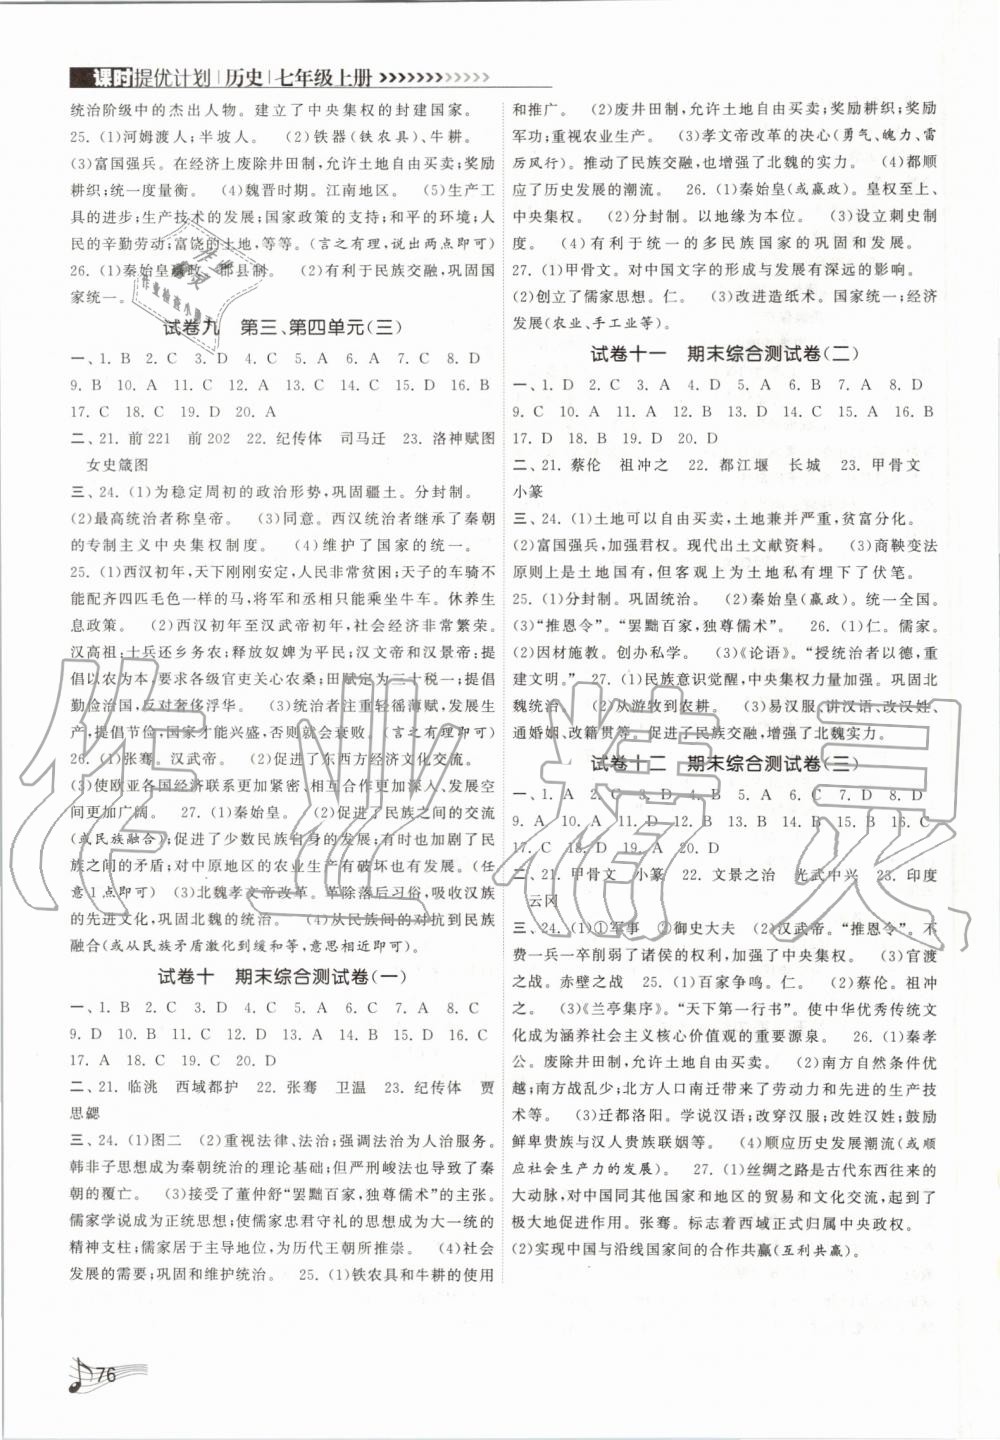 课时提优计划|历史|七年级上册
统治阶级中的杰出人物。建立了中央集权的封建国家。
25. (1)河姆渡人;半坡人。 (2)铁器(铁农具)、牛耕。
(3)富国强兵。在经济上废除井田制,允许土地自由买卖;奖励
耕织;统一度量衡。 (4)魏晋时期。江南地区。 (5)生产工
具的进步;生产技术的发展;国家政策的支持;和平的环境;人
民的辛勤劳动;富饶的土地,等等。(言之有理,说出两点即可)
26. (1)秦始皇嬴政。郡县制。 (2)有利于民族交融,巩固国
家统一。
试卷九 第三、第四单元(三)
一、1. B 2. C 3. D 4. C 5. A 6. A 7. C 8. D
9. B 10. A 11. D 12. B 13. A 14. C 15. A 16. B
17. C 18. C 19. D 20. A
二、21. 前221 前202 22. 纪传体 司马迁 23. 洛神赋图
女史箴图
三、24. (1)为稳定周初的政治形势,巩固疆土。分封制。
(2)最高统治者称皇帝。 (3)同意。西汉统治者继承了秦朝
的专制主义中央集权制度。 (4)维护了国家的统一。
25. (1)西汉初年,天下刚刚安定,人民非常贫困;天子的车骑不
能配齐四匹毛色一样的马,将军和丞相只能乘坐牛车。休养生
息政策。 (2)西汉初年至汉武帝初年,社会经济非常繁荣。
汉高祖:士兵还乡务农;释放奴婢为平民;汉文帝和汉景帝:提
倡以农为本,要求各级官吏关心农桑;田赋定为三十税一;提倡
勤俭治国,反对奢侈浮华。 (3)统治者注重轻徭薄赋,发展生
产,提倡节俭,国家才能兴盛,否则就会衰败。(言之有理即可)
26. (1)张骞。汉武帝。 (2)促进了东西方经济文化交流。
(3)使欧亚各国经济联系更加密切,经济合作更加深入,发展空
间更加广阔。 27. (1)秦始皇。 (2)促进了民族之间的交流
(或民族融合);促进了少数民族自身的发展;加剧了民族与民
族之间的矛盾;对中原地区的农业生产有破坏也有发展。(任
意1点即可) (3)北魏孝文帝改革。革除落后习俗,吸收汉族
的先进文化,巩固北魏的统治。 (4)从民族间的对抗到民族
融合(或从民族矛盾激化到缓和等,意思相近即可)。
试卷十 期末综合测试卷(一)
一、1. B 2. C 3. D 4. D 5. A 6. A 7. B 8. C
9. D 10. B 11. C 12. B 13. C 14. D 15. D 16. C
17. A 18. A 19. C 20. D
二、21. 临洮 西域都护 22. 张骞 卫温 23. 纪传体 贾
思勰
三、24. (1)图二 (2)重视法律、法治;强调法治为人治服务。
韩非子思想成为秦朝统治的理论基础;但严刑峻法也导致了秦
朝的覆亡。 (3)接受了董仲舒“罢黜百家,独尊儒术”的主张。
儒家学说成为正统思想;儒家忠君守礼的思想成为大一统的
精神支柱;儒家居于主导地位,为历代王朝所推崇。 (4)社会
发展的需要;巩固和维护统治。 25. (1)铁农具和牛耕的使用
和推广。 (2)废井田制,允许土地自由买卖;奖励耕织;奖励
军功;重视农业生产。 (3)孝文帝改革的决心(勇气、魄力、雷
厉风行)。推动了民族交融,也增强了北魏的实力。 (4)都顺
应了历史发展的潮流。 26. (1)秦始皇(或嬴政)。皇权至上、
中央集权。 (2)分封制。以地缘为本位。 (3)设立刺史制
度。 (4)有利于统一的多民族国家的巩固和发展。
27. (1)甲骨文。对中国文字的形成与发展有深远的影响。
(2)创立了儒家思想。仁。 (3)改进造纸术。国家统一;经济
发展(农业、手工业等)。
试卷十一 期末综合测试卷(二)
一、1. D 2. C 3. A 4. D 5. A 6. B 7. A 8. D
9. C 10. A 11. A 12. B 13. C 14. C 15. A 16. B
17. D 18. D 19. B 20. D
二、21. 蔡伦 祖冲之 22. 都江堰 长城 23. 甲骨文
小篆
三、24. (1)土地可以自由买卖,土地兼并严重,贫富分化。
(2)富国强兵,加强君权。现代出土文献资料。 (3)商鞅变法
原则上是土地国有,但客观上为土地私有埋下了伏笔。
25. (1)分封制。巩固统治。 (2)秦始皇(嬴政)。统一全国。
(3)“推恩令”。“罢黜百家,独尊儒术”。 26. (1)仁。儒家。
(2)因材施教。创办私学。 (3)《论语》。“授统治者以德,重
建文明。” 27. (1)民族意识觉醒,中央集权力量加强。巩固北
魏统治 (2)从游牧到农耕。 (3)易汉服、讲汉语、改汉姓、
通婚姻、改籍贯等。促进了民族交融,增强了北魏实力。
试卷十二 期末综合测试卷(三)
一、1. A 2. C 3. D 4. B 5. C 6. C 7. D 8. D
9. A 10. A 11. D 12. B 13. D 14. B 15. B 16. C
17. C 18. D 19. A 20. D
二、21. 甲骨文 小篆 22. 文景之治 光武中兴 23. 印度
云冈
三、24. (1)①军事 ②御史大夫 (2)汉武帝。“推恩令”。不
费一兵一卒却削弱了诸侯的实力,加强了中央集权。 (3)官渡
之战。赤壁之战 25. (1)百家争鸣。仁。 (2)蔡伦。祖冲
之。 (3)《兰亭集序》。“天下第一行书”。使中华优秀传统文
化成为涵养社会主义核心价值观的重要源泉。 26. (1)秦孝
公。废除井田制,允许土地自由买卖。 (2)南方自然条件优
越;南方战乱少;北方人口南迁带来了劳动力和先进的生产技
术等。 (3)迁都洛阳。学说汉语;改穿汉服;改姓汉姓;鼓励
鲜卑贵族与汉人贵族联姻等。 (4)顺应历史发展潮流(或顺
应社会生产力的发展)。 27. (1)丝绸之路是古代东西往来的
大动脉,对中国同其他国家和地区的贸易和文化交流,起到了
极大地促进作用。张骞。标志着西域正式归属中央政权。
(2)实现中国与沿线国家间的合作共赢(互利共赢)。
76
作业精灵
作业检查小助手
作业精灵